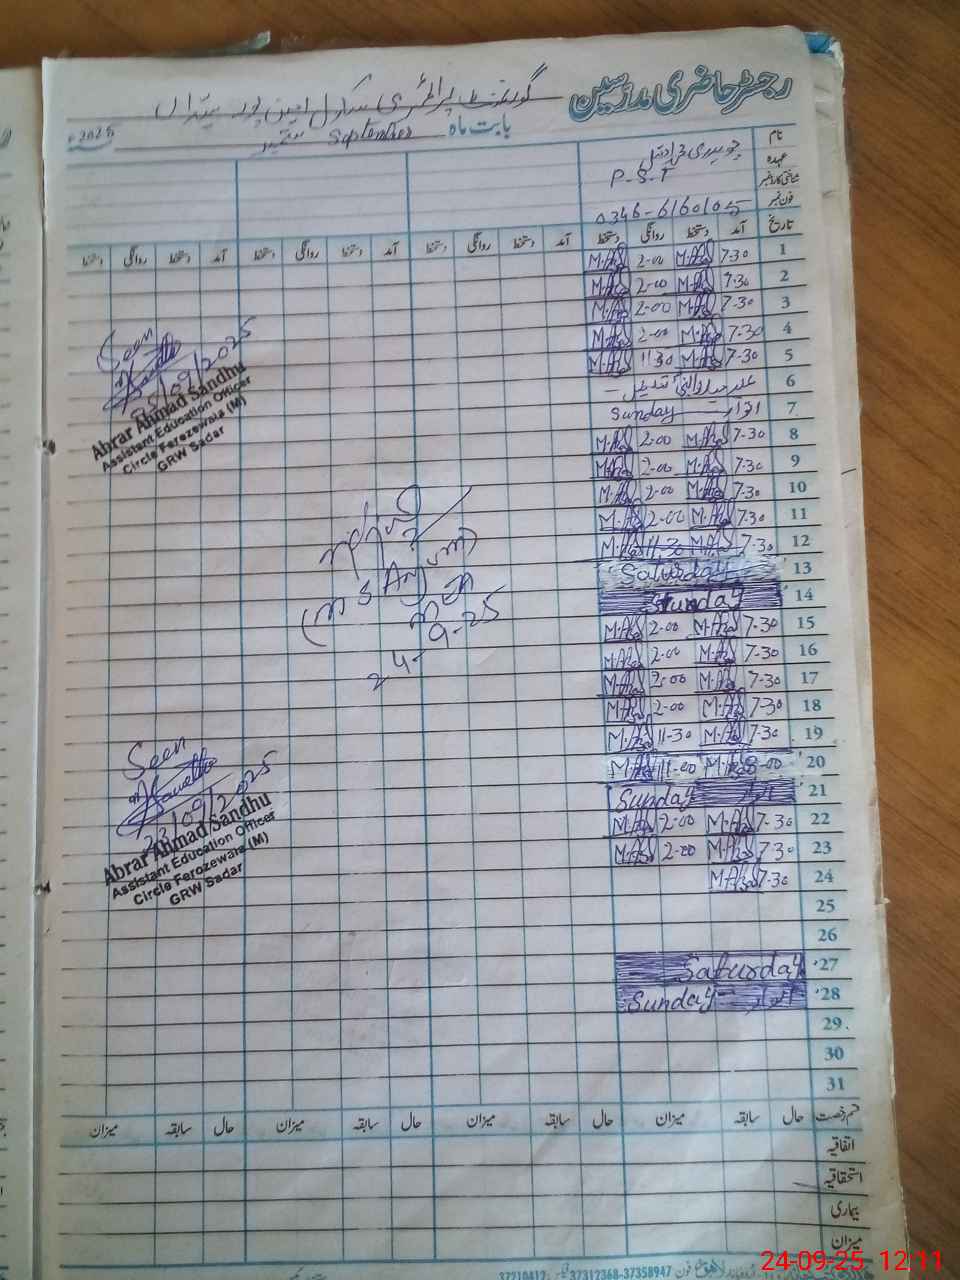 رجسٹر حاضری مدرسین
گورنمنٹ پرائمری سکول امین پور سیداں
بابت ماہ September ستمبر 2025ء
نام
عہدہ P-S-T
شناختی کارڈ نمبر
فون نمبر 0346-6160105
تاریخ آمد دستخط روانگی دستخط آمد دستخط روانگی دستخط آمد دستخط روانگی دستخط
1 7-30 2-00
2 7-30 2-00
3 7-30 2-00
4 7-30 2-00
5 7-30 11-30
6 عید میلاد النبی
7 اتوار Sunday
8 7-30 2-00
9 7-30 2-00
10 7-30 2-00
11 7-30 2-00
12 7-30 11-30
13 Saturday
14 Sunday
15 7-30 2-00
16 7-30 2-00
17 7-30 2-00
18 7-30 2-00
19 7-30 11-30
20 8-00 11-00
21 اتوار Sunday
22 7-30 2-00
23 7-30 2-00
24 7-30
25
26
27 Saturday
28 اتوار Sunday
29
30
31
Seen
/09/2025
Abrar Ahmad Sandhu
Assistant Education Officer
Circle Ferozewala (M)
GRW Sadar
(M S Anjum)
MEA
24-9-25
Seen
23/09/2025
Abrar Ahmad Sandhu
Assistant Education Officer
Circle Ferozewala (M)
GRW Sadar
قسم رخصت حال سابقہ میزان حال سابقہ میزان حال سابقہ میزان حال سابقہ میزان
اتفاقیہ
استحقاقیہ
بیماری
میزان
لاہور فون 37312368-37358947 فیکس 37210412
24-09-25 12:11